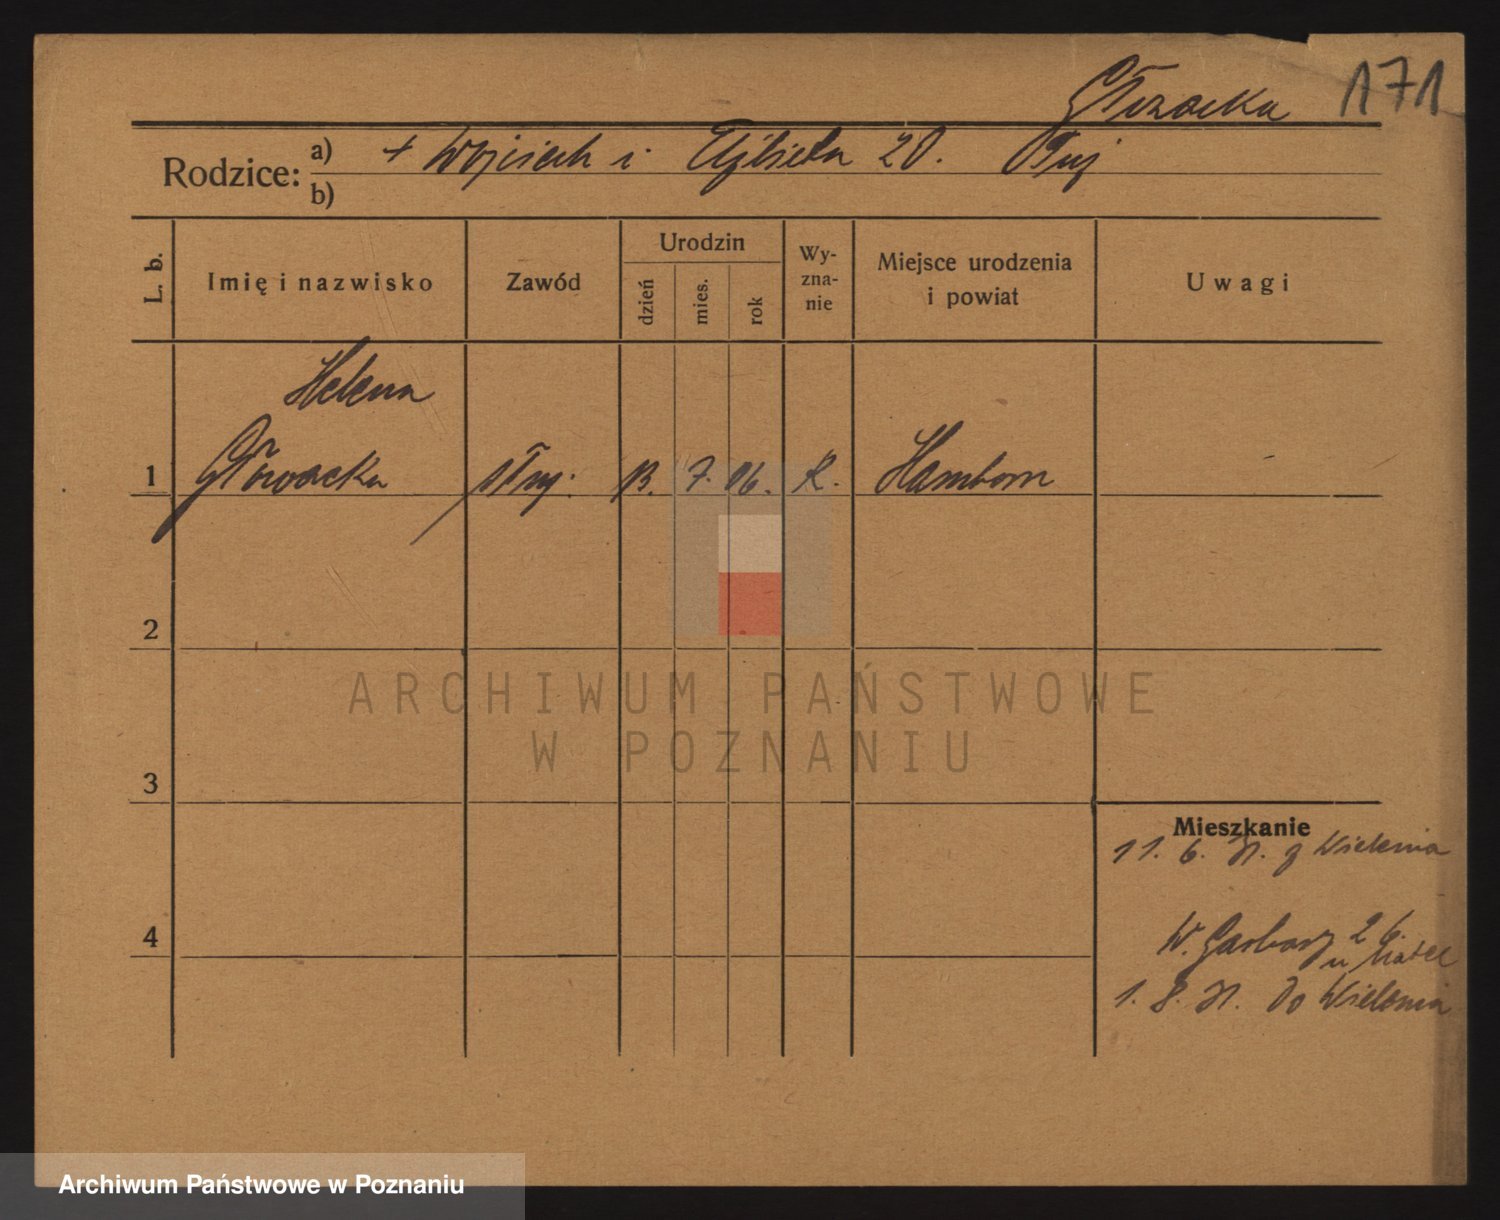 171
Rodzice: a) + Wojciech i Elżbieta z D.
b)
L. b.
Imię i nazwisko
Zawód
Urodzin
dzień
mies.
rok
Wy-
zna-
nie
Miejsce urodzenia
i powiat
Uwagi
Helena
1 Głowacka służ. 13. 7. 06. R. Hamborn
2
3
4
Mieszkanie
11. 6. 31. z Wielenia
W. Garbary 26.
u
1. 8. 31. do Wielenia
ARCHIWUM PAŃSTWOWE
W POZNANIU
Archiwum Państwowe w Poznaniu